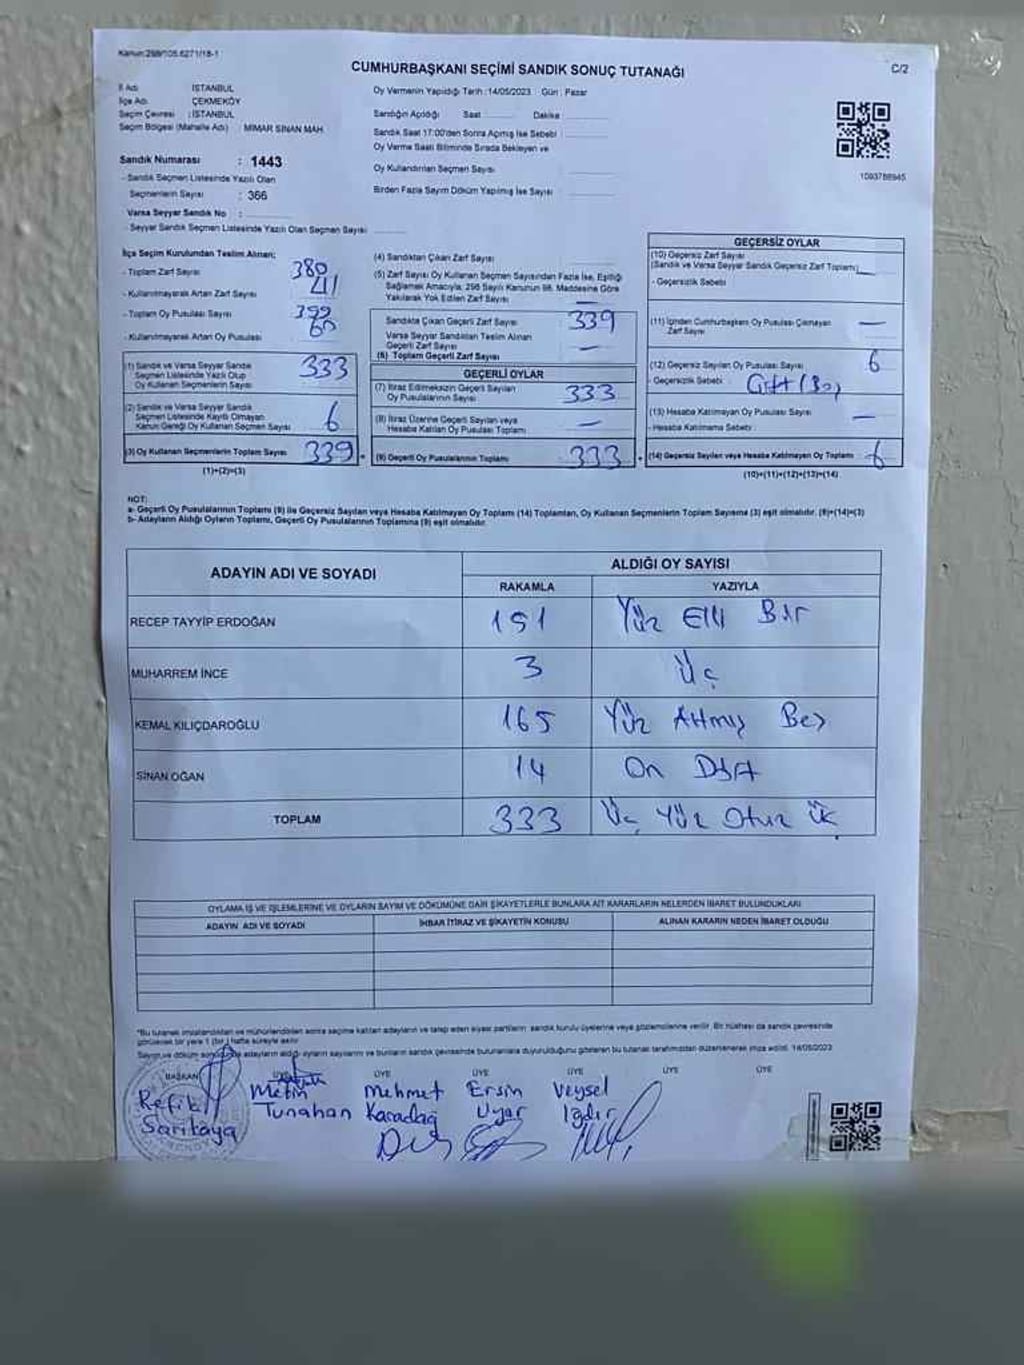 Kanun:298/105.6271/18-1
CUMHURBAŞKANI SEÇİMİ SANDIK SONUÇ TUTANAĞI
C/2
İl Adı : İSTANBUL
İlçe Adı : ÇEKMEKÖY
Seçim Çevresi : İSTANBUL
Seçim Bölgesi (Mahalle Adı) : MİMAR SİNAN MAH.
Sandık Numarası : 1443
- Sandık Seçmen Listesinde Yazılı Olan
Seçmenlerin Sayısı : 366
Varsa Seyyar Sandık No :
- Seyyar Sandık Seçmen Listesinde Yazılı Olan Seçmen Sayısı
Oy Vermenin Yapıldığı Tarih :14/05/2023 Gün : Pazar
Sandığın Açıldığı Saat Dakika
Sandık Saat 17:00'den Sonra Açılmış İse Sebebi :
Oy Verme Saati Bitiminde Sırada Bekleyen ve
Oy Kullandırılan Seçmen Sayısı
Birden Fazla Sayım Döküm Yapılmış İse Sayısı
1093788945
İlçe Seçim Kurulundan Teslim Alınan;
- Toplam Zarf Sayısı 380
- Kullanılmayarak Artan Zarf Sayısı 41
- Toplam Oy Pusulası Sayısı 399
- Kullanılmayarak Artan Oy Pusulası 60
(1) Sandık ve Varsa Seyyar Sandık
Seçmen Listesinde Yazılı Olup
Oy Kullanan Seçmenlerin Sayısı 333
(2) Sandık ve Varsa Seyyar Sandık
Seçmen Listesinde Kayıtlı Olmayan
Kanun Gereği Oy Kullanan Seçmen Sayısı 6
(3) Oy Kullanan Seçmenlerin Toplam Sayısı 339
(1)+(2)=(3)
(4) Sandıktan Çıkan Zarf Sayısı
(5) Zarf Sayısı Oy Kullanan Seçmen Sayısından Fazla İse, Eşitliği
Sağlamak Amacıyla; 298 Sayılı Kanunun 98. Maddesine Göre
Yakılarak Yok Edilen Zarf Sayısı —
Sandıkta Çıkan Geçerli Zarf Sayısı 339
Varsa Seyyar Sandıktan Teslim Alınan
Geçerli Zarf Sayısı —
(6) Toplam Geçerli Zarf Sayısı
GEÇERLİ OYLAR
(7) İtiraz Edilmeksizin Geçerli Sayılan
Oy Pusulalarının Sayısı 333
(8) İtiraz Üzerine Geçerli Sayılan veya
Hesaba Katılan Oy Pusulası Toplamı —
(9) Geçerli Oy Pusulalarının Toplamı 333
GEÇERSİZ OYLAR
(10) Geçersiz Zarf Sayısı
(Sandık ve Varsa Seyyar Sandık Geçersiz Zarf Toplamı)
- Geçersizlik Sebebi :
(11) İçinden Cumhurbaşkanı Oy Pusulası Çıkmayan
Zarf Sayısı —
(12) Geçersiz Sayılan Oy Pusulası Sayısı 6
- Geçersizlik Sebebi :
(13) Hesaba Katılmayan Oy Pusulası Sayısı —
- Hesaba Katılmama Sebebi :
(14) Geçersiz Sayılan veya Hesaba Katılmayan Oy Toplamı 6
(10)+(11)+(12)+(13)=(14)
NOT:
a- Geçerli Oy Pusulalarının Toplamı (9) ile Geçersiz Sayılan veya Hesaba Katılmayan Oy Toplamı (14) Toplamları, Oy Kullanan Seçmenlerin Toplam Sayısına (3) eşit olmalıdır. (9)+(14)=(3)
b- Adayların Aldığı Oyların Toplamı, Geçerli Oy Pusulalarının Toplamına (9) eşit olmalıdır.
ADAYIN ADI VE SOYADI ALDIĞI OY SAYISI
RAKAMLA YAZIYLA
RECEP TAYYİP ERDOĞAN 151 Yüz Elli Bir
MUHARREM İNCE 3 Üç
KEMAL KILIÇDAROĞLU 165 Yüz Altmış Beş
SİNAN OĞAN 14 On Dört
TOPLAM 333 Üç Yüz Otuz Üç
OYLAMA İŞ VE İŞLEMLERİNE VE OYLARIN SAYIM VE DÖKÜMÜNE DAİR ŞİKAYETLERLE BUNLARA AİT KARARLARIN NELERDEN İBARET BULUNDUKLARI
ADAYIN ADI VE SOYADI İHBAR İTİRAZ VE ŞİKAYETİN KONUSU ALINAN KARARIN NEDEN İBARET OLDUĞU
*Bu tutanak imzalandıktan ve mühürlendikten sonra seçime katılan adayların ve talep eden siyasi partilerin sandık kurulu üyelerine veya gözlemcilerine verilir. Bir nüshası da sandık çevresinde
görülecek bir yere 1 (bir) hafta süreyle asılır.
Sayım ve döküm adayların aldığı oyların sayılarını ve bunların sandık çevresinde bulunanlara duyurulduğunu gösteren bu tutanak tarafımızdan düzenlenerek imza edildi. 14/05/2023
BAŞKAN ÜYE ÜYE ÜYE ÜYE ÜYE ÜYE
Refik Metin Mehmet Ersin Veysel
Sarıkaya Tunahan Karadağ Uyar Iğdır